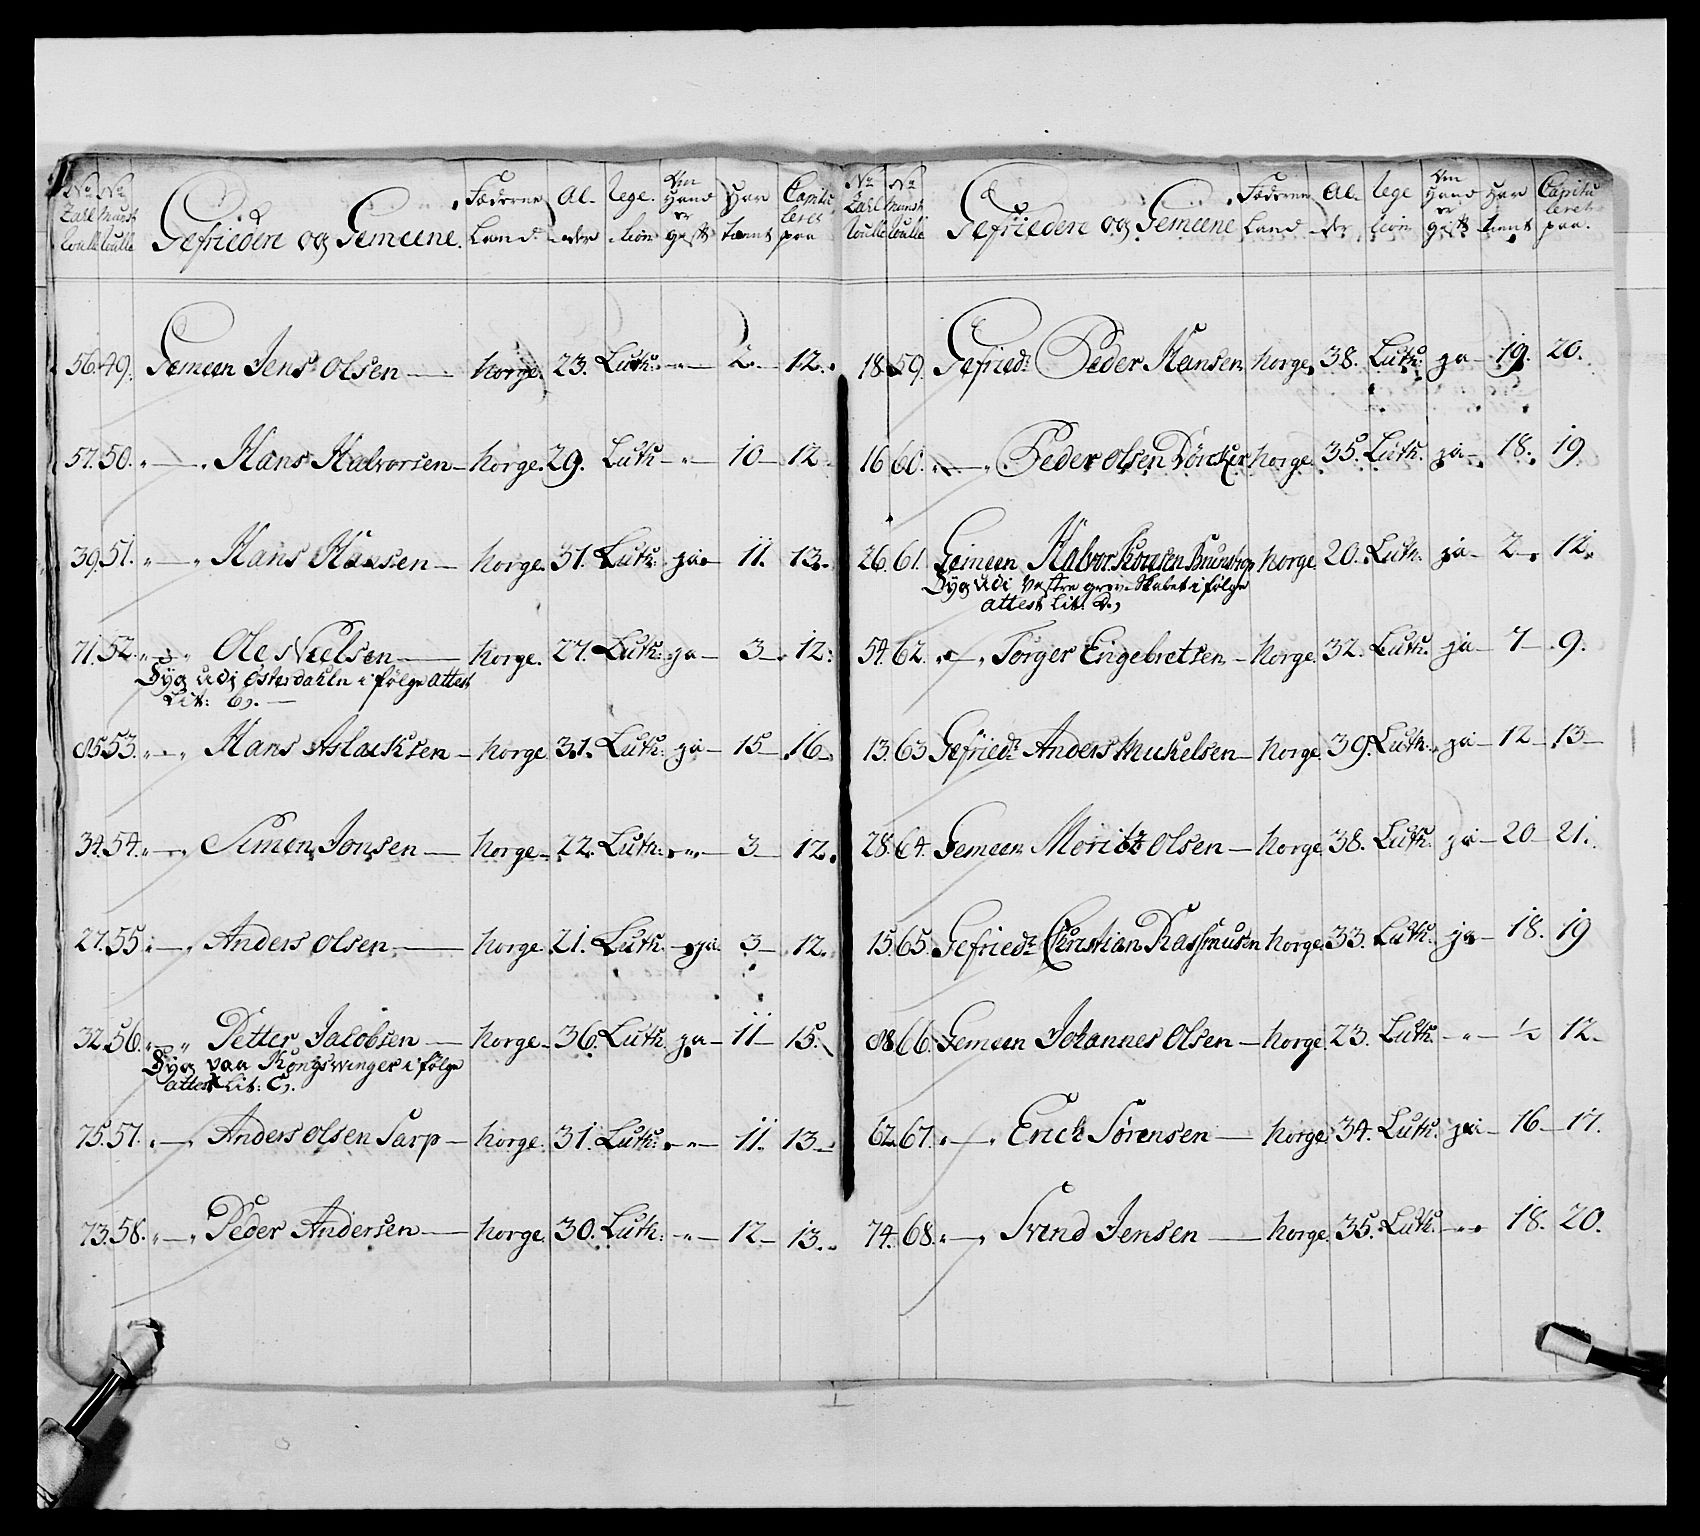 No No Gefriedere og Gemeene. Fæderne Al- Relegi- Om Hand Har Capitu-
Zahl Munst. Land der tion er gift tient leret paa
56. 49. Gemeen Jens Olsen — Norge. 23. Luth: -"- 2. 12.
57. 50. " — " Hans Halvorsen — Norge. 29. Luth -"- 10 — 12
39. 51. " — " Hans Hansen — Norge. 31. Luth: ja — 11. 13.
71. 52. " — " Ole Nielsen — Norge. 27. Luth: ja — 3 — 12.
Syg udi Østerdahln i følge Attest
Lit: B. —
85. 53. " — " Hans Aslacksen — Norge. 31. Luth: ja — 15 — 16 —
34. 54. " — " Simon Jonsen — Norge. 22. Luth. -"- 3 — 12.
27. 55. " — " Anders Olsen — Norge. 21. Luth. — ja 3 — 12.
32. 56. " — " Petter Jacobsen — Norge. 36. Luth. ja — 11 — 15.
Syg paa Kongswinger i følge
attest Lit: C.
75. 57. " — " Anders Olsen Sarp — Norge. 31. Luth: -"- 11. 13 —
73. 58. " — " Peder Andersen — Norge. 30. Luth. -"- 12 — 13.
No No Gefriedere og Gemeene Fæderne Al- Relegi- Om Hand Har Capitu-
Zahl Munst. Land der tion er gift tient leret paa.
18 59. Gefried: Peder Hansen Norge. 38. Luth. ja — 19. 20.
16 60. " — " Peder Olsen Norge. 35. Luth. ja — 18. 19
26. 61. Gemeen Halvor Norge 20. Luth. ja — 2 — 12.
Syg udi Vestre Grev-Skabet i følge
attest Lit: D.
54. 62. " — " Torger Engebretsen — Norge. 32. Luth. ja — 7 — 9.
13. 63 Gefried: Anders Mickelsen — Norge. 39. Luth. ja — 12 — 13 —
28. 64. Gemeen Moritz Olsen — Norge. 38. Luth. ja — 20 — 21.
15. 65. Gefried: Christian Rassmusen Norge. 33. Luth. ja — 18. 19
88. 66. Gemeen Johannes Olsen — Norge 23. Luth. — " — ½ 12 —
62. 67. " — " Erich Sørensen — Norge. 34. Luth. ja — 16 — 17.
74. 68. " — " Svend Jensen — Norge. 35. Luth. — " 18. 20.